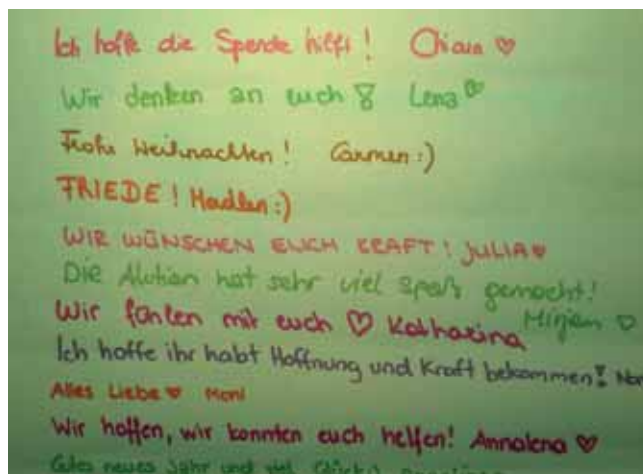 Ich hoffe die Spende hilft! Chiara ♡
Wir denken an euch! Lena ♡
Frohe Weihnachten! Carmen :)
FRIEDE! Madlen :)
WIR WÜNSCHEN EUCH KRAFT! JULIA ♥
Die Aktion hat sehr viel Spaß gemacht! Mirjam ♡
Wir fühlen mit euch ♡ Katharina
Ich hoffe ihr habt Hoffnung und Kraft bekommen!
Alles Liebe ♥ Moni
Wir hoffen, wir konnten euch helfen! Annalena ♡
Gutes neues Jahr und viel Glück!